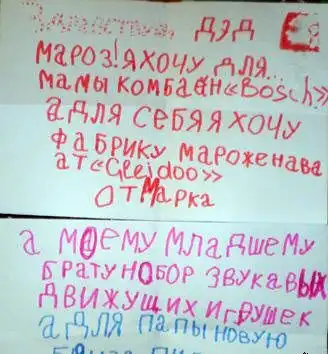 Здравствуй, ДЭД
МАРОЗ!Я ХОЧУ ДЛЯ...
МАМЫ КОМБАЙН «Bosch»
А ДЛЯ СЕБЯ Я ХОЧУ
ФАБРИКУ МАРОЖЕНАВА
АТ «Gleidoo»
ОТ МАРКА
А МОЕМУ МЛАДШЕМУ
БРАТУ НОБОР ЗВУКАВЫХ
ДВИЖУЩИХ ИГРУШЕК
А ДЛЯ ПАПЫ НОВУЮ